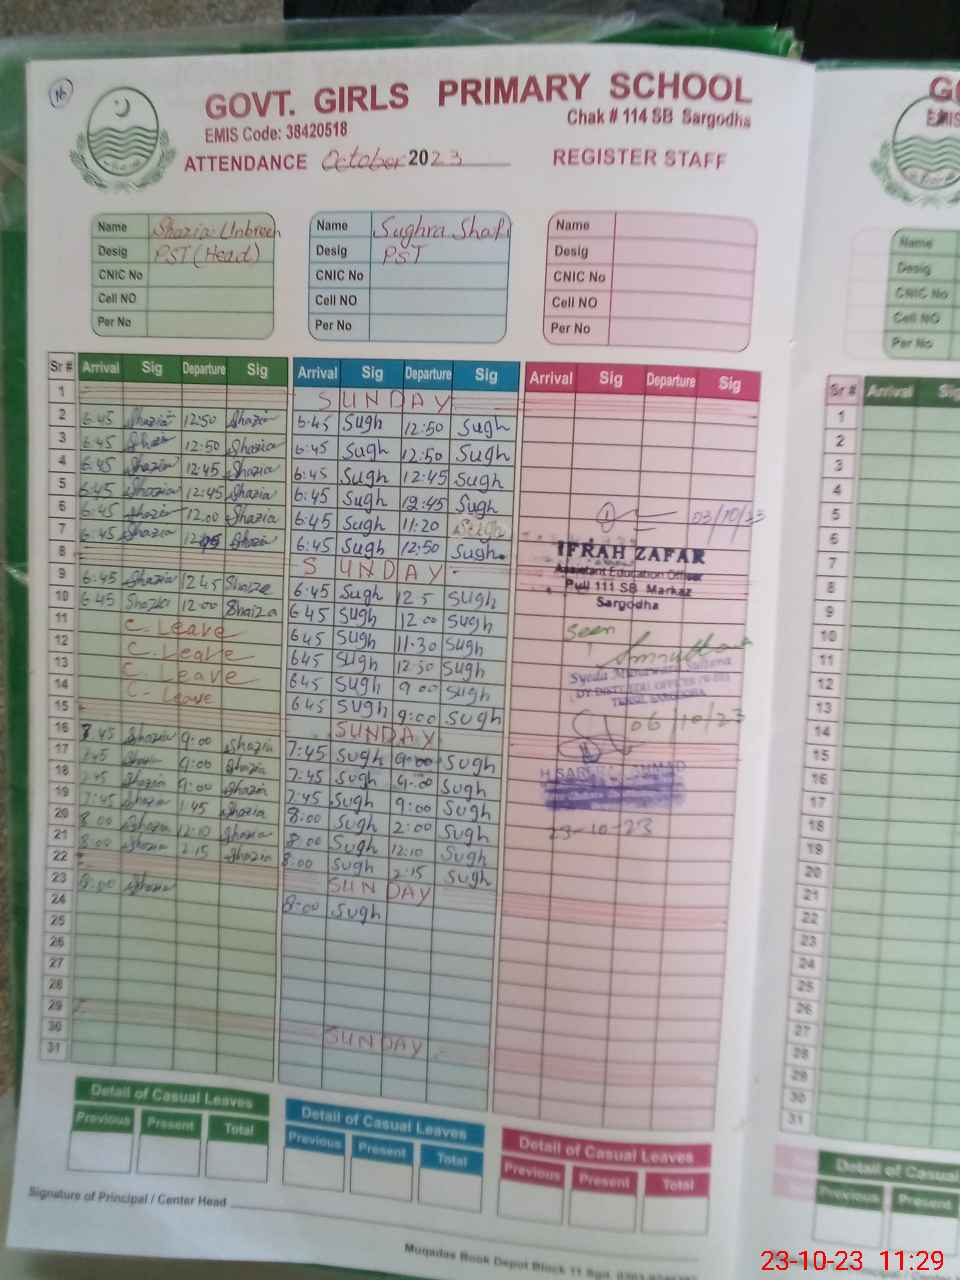 16
GOVT. GIRLS PRIMARY SCHOOL
EMIS Code: 38420518
Chak # 114 SB Sargodha
ATTENDANCE October 2023 REGISTER STAFF
Name Shazia Umbreen
Desig PST (Head)
CNIC No
Cell NO
Per No
Name Sughra Shafi
Desig PST
CNIC No
Cell NO
Per No
Name
Desig
CNIC No
Cell NO
Per No
Sr # Arrival Sig Departure Sig Arrival Sig Departure Sig Arrival Sig Departure Sig
1 SUNDAY
2 6:45 Shazia 12:50 Shazia 6:45 Sugh 12:50 Sugh
3 6:45 Shazia 12:50 Shazia 6:45 Sugh 12:50 Sugh
4 6:45 Shazia 12:45 Shazia 6:45 Sugh 12:45 Sugh
5 6:45 Shazia 12:45 Shazia 6:45 Sugh 12:45 Sugh
6 6:45 Shazia 12:00 Shazia 6:45 Sugh 11:20 Sugh
7 6:45 Shazia Shazia 6:45 Sugh 12:50 Sugh
8 SUNDAY
9 6:45 Shazia 12:45 Shaiza 6:45 Sugh 12 5 Sugh
10 6:45 Shazia 12:00 Shaiza 6 45 Sugh 12:00 Sugh
11 C. Leave 6 45 Sugh 11:30 Sugh
12 C. Leave 645 Sugh 12:30 Sugh
13 C. Leave 645 Sugh 9:00 Sugh
14 C- Leave 645 Sugh 9:00 Sugh
15 SUNDAY
16 7:45 Shazia 9:00 Shazia 7:45 Sugh 9:00 Sugh
17 7:45 Shazia 9:00 Shazia 7:45 Sugh 9:00 Sugh
18 7:45 Shazia 9:00 Shazia 7:45 Sugh 9:00 Sugh
19 7:45 Shazia 1:45 Shazia 8:00 Sugh 2:00 Sugh
20 8:00 Shazia 12:10 Shazia 8:00 Sugh 12:10 Sugh
21 8:00 Shazia 2:15 Shazia 8:00 Sugh 2:15 Sugh
22 SUNDAY
23 8:00 Shazia 8:00 Sugh
24
25
26
27
28
29 SUNDAY
30
31
03/10/23
IFRAH ZAFAR
Assistant Education Officer
Pull 111 SB Markaz
Sargodha
Seen
06/10/23
23-10-23
Detail of Casual Leaves
Previous Present Total
Detail of Casual Leaves
Previous Present Total
Detail of Casual Leaves
Previous Present Total
Signature of Principal / Center Head
Muqadas Book Depot Block 11 Sgd.
Name
Desig
CNIC No
Cell NO
Per No
Sr # Arrival
1
2
3
4
5
6
7
8
9
10
11
12
13
14
15
16
17
18
19
20
21
22
23
24
25
26
27
28
29
30
31
Detail of Casual
Previous Present
23-10-23 11:29